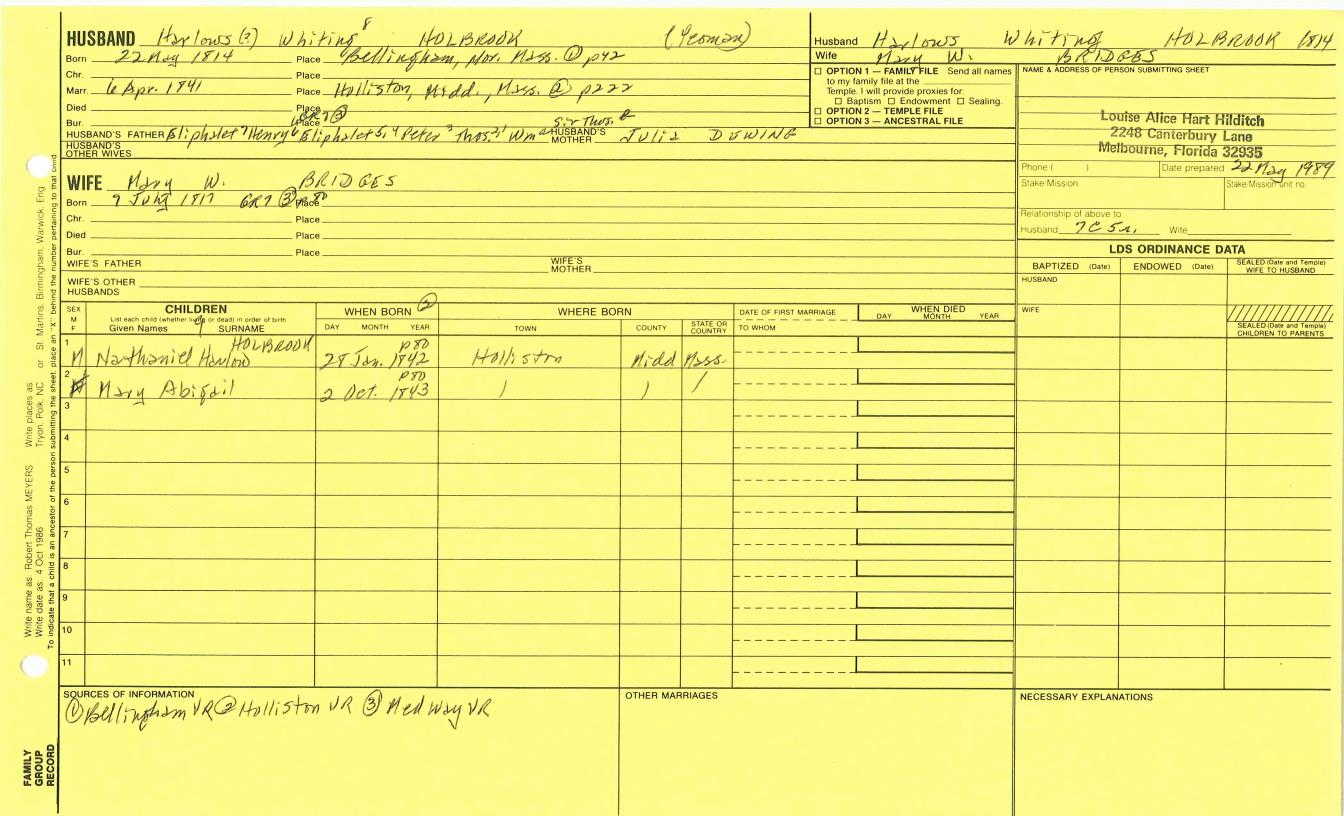 8
HUSBAND Harlows (?) Whiting HOLBROOK (Yeoman)
Born 22 May 1814 Place Bellingham, Nor. Mass. ① p42
Chr. Place
Marr. 6 Apr. 1841 Place Holliston, Midd., Mass. ② p222
Died Place
Bur. Place GR7 ③ Sir Thos.
HUSBAND'S FATHER Eliphalet 7 Henry 6 Eliphalet 5, 4 Peter 3 Thos. Wm HUSBAND'S MOTHER Julia DEWING
HUSBAND'S OTHER WIVES
WIFE Mary W. BRIDGES
Born 9 July 1817 GR7 ③ p80 Place
Chr. Place
Died Place
Bur. Place
WIFE'S FATHER WIFE'S MOTHER
WIFE'S OTHER HUSBANDS
Husband Harlows Whiting HOLBROOK 1814
Wife Mary W. BRIDGES
☐ OPTION 1 — FAMILY FILE Send all names
to my family file at the
Temple. I will provide proxies for:
☐ Baptism ☐ Endowment ☐ Sealing.
☐ OPTION 2 — TEMPLE FILE
☐ OPTION 3 — ANCESTRAL FILE
NAME & ADDRESS OF PERSON SUBMITTING SHEET
Louise Alice Hart Hilditch
2248 Canterbury Lane
Melbourne, Florida 32935
Phone ( ) Date prepared 22 May 1989
Stake Mission Stake/Mission unit no.
Relationship of above to
Husband 7C 5r. Wife
LDS ORDINANCE DATA
BAPTIZED (Date) ENDOWED (Date) SEALED (Date and Temple) WIFE TO HUSBAND
HUSBAND
WIFE
SEALED (Date and Temple) CHILDREN TO PARENTS
SEX M F
CHILDREN
List each child (whether living or dead) in order of birth
Given Names SURNAME
WHEN BORN ②
DAY MONTH YEAR
WHERE BORN
TOWN COUNTY STATE OR COUNTRY
DATE OF FIRST MARRIAGE
TO WHOM
WHEN DIED
DAY MONTH YEAR
1 HOLBROOK p80
M Nathaniel Harlow 28 Jan. 1842 Holliston Midd Mass.
2 p80
F Mary Abigail 2 Oct. 1843
3
4
5
6
7
8
9
10
11
SOURCES OF INFORMATION
① Bellingham VR ② Holliston VR ③ Medway VR
OTHER MARRIAGES
NECESSARY EXPLANATIONS
Write name as: Robert Thomas MEYERS Write places as: Tryon, Polk, NC or St. Martins, Birmingham, Warwick, Eng.
Write date as: 4 Oct 1986
To indicate that a child is an ancestor of the person submitting the sheet, place an "X" behind the number pertaining to that child.
FAMILY GROUP RECORD